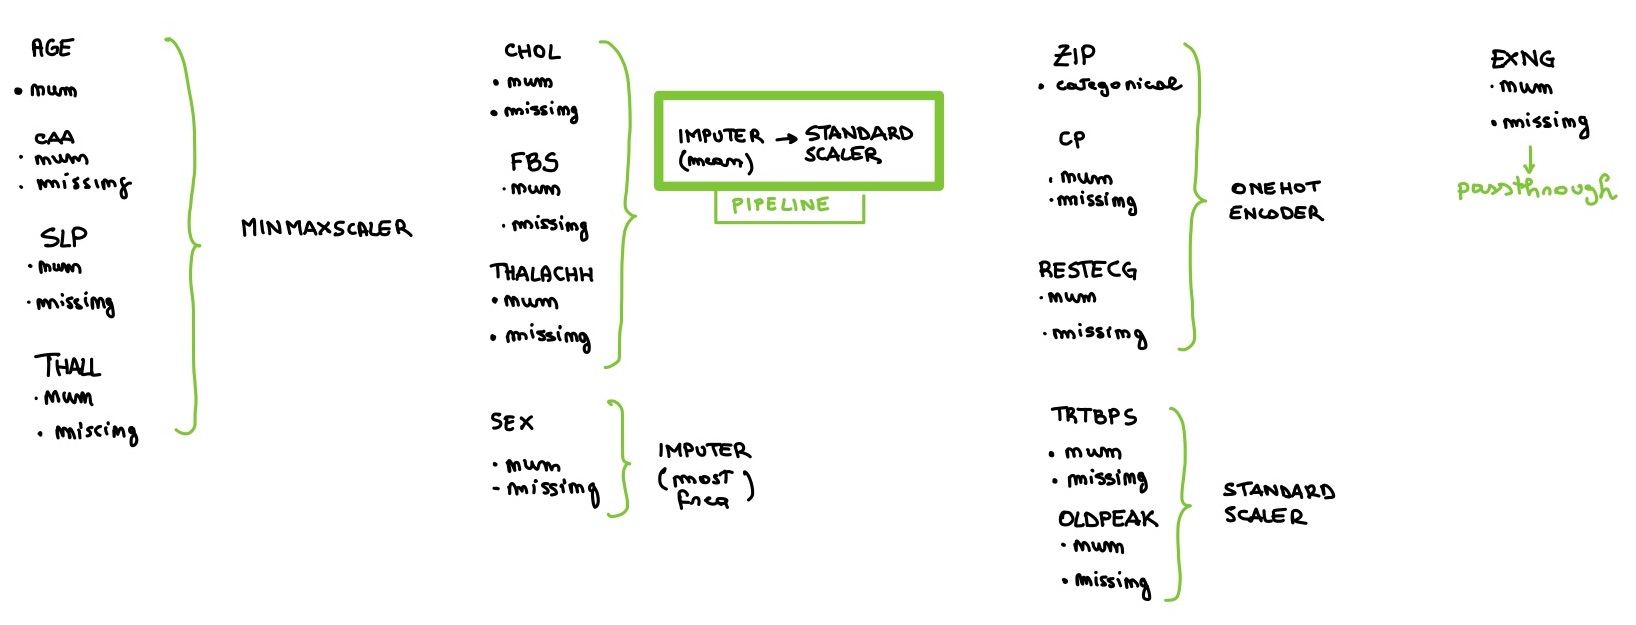 AGE
• num
CAA
• num
• missing
SLP
• num
• missing
THALL
• num
• missing
MINMAXSCALER
CHOL
• num
• missing
FBS
• num
• missing
THALACHH
• num
• missing
IMPUTER → STANDARD
(mean) SCALER
PIPELINE
SEX
• num
- missing
IMPUTER
(most
freq)
ZIP
• categorical
CP
• num
• missing
RESTECG
• num
• missing
ONEHOT
ENCODER
TRTBPS
• num
• missing
OLDPEAK
• num
• missing
STANDARD
SCALER
EXNG
• num
• missing
passthrough